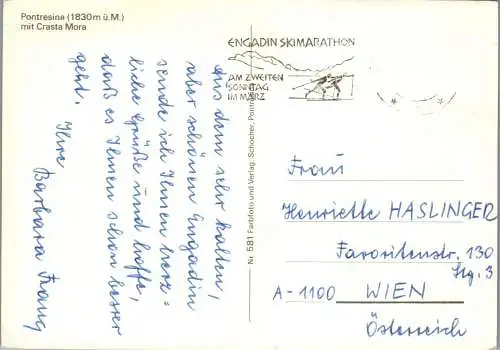 Pontresina (1830 m ü.M.)
mit Crasta Mora
Aus dem sehr kalten,
aber schönen Engadin
sende ich Ihnen herz=
liche Grüße und hoffe,
daß es Ihnen schon besser
geht. Ihre
Barbara Franz
Nr. 581 Farbfoto und Verlag: Schocher, Pontr
ENGADIN SKIMARATHON
AM ZWEITEN
SONNTAG
IM MÄRZ
Frau
Henriette HASLINGER
Favoritenstr. 130
Stg. 3
A-1100 WIEN
Österreich